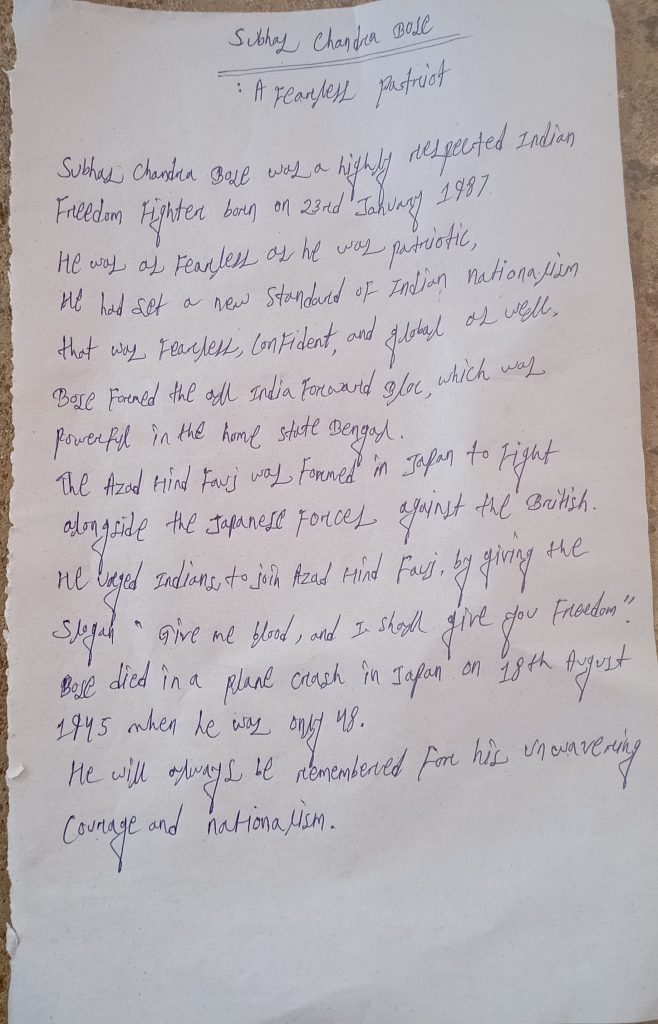 Subhas Chandra Bose
: A Fearless Patriot
Subhas Chandra Bose was a highly respected Indian
Freedom Fighter born on 23rd January 1987.
He was as Fearless as he was patriotic,
He had set a new Standard of Indian nationalism
that was Fearless, Confident, and global as well.
Bose Formed the all India Forward Bloc, which was
Powerful in the home state Bengal.
The Azad Hind Fauj was Formed in Japan to Fight
alongside the Japanese Forces against the British.
He Urged Indians, to join Azad Hind Fauj, by giving the
Slogan " Give me blood, and I shall give you Freedom".
Bose died in a plane crash in Japan on 18th August
1945 when he was only 48.
He will always be remembered For his unwavering
Courage and nationalism.